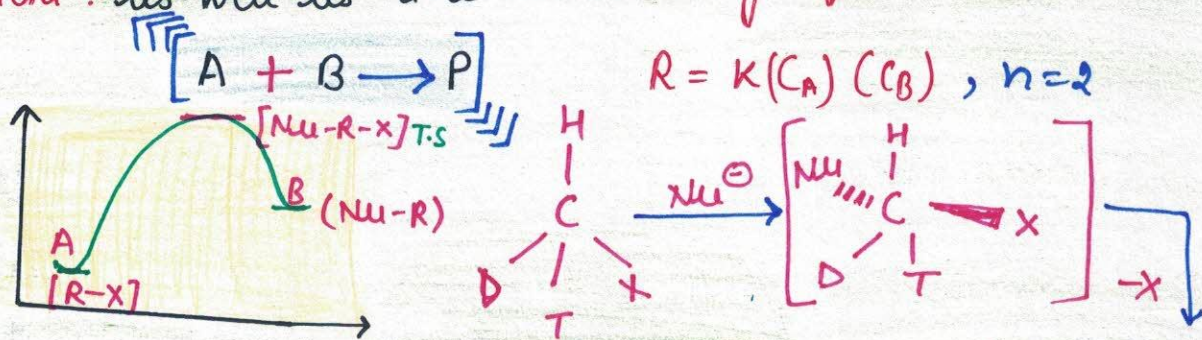 [A + B ⟶ P]
R = K(C_A) (C_B) , n=2
[Nu-R-X] T.S
B (Nu-R)
A
[R-X]
H
C
D T X
Nu⊖
H
Nu C X
D T
-X